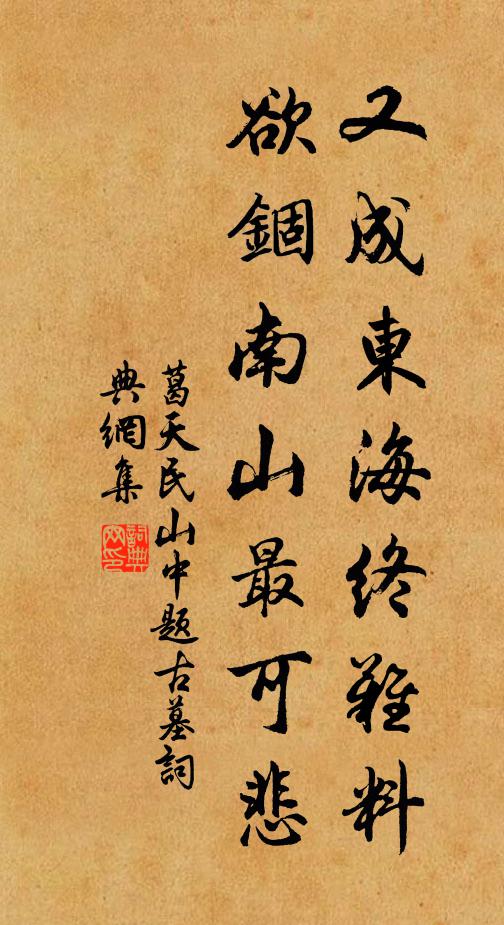 又成東海終難料
欲錮南山最可悲
葛天民山中題古墓詞
典網集
詞典网印